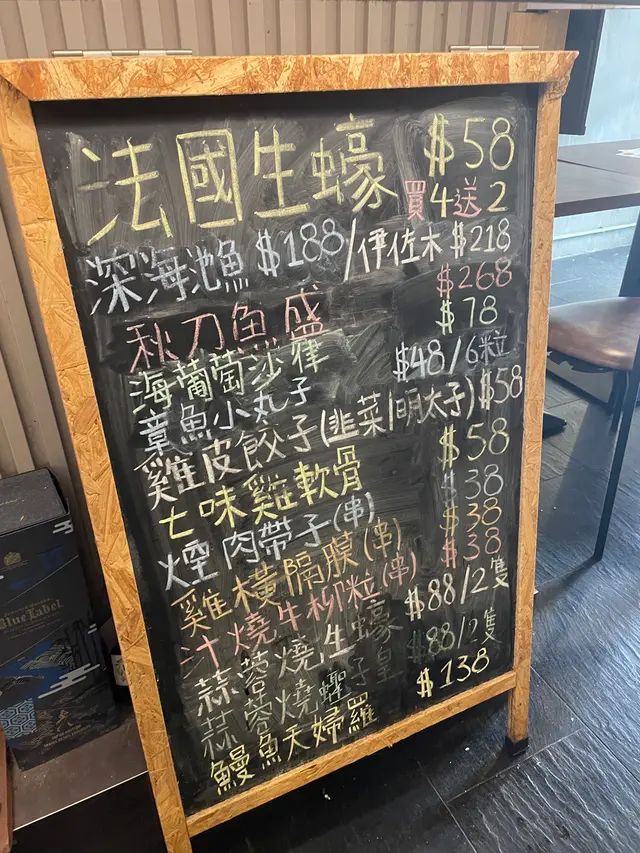 法國生蠔 $58
買4送2
深海池魚 $188/伊佐木 $218
秋刀魚盛 $268
海葡萄沙律 $78
章魚小丸子 $48/6粒
雞皮餃子(韭菜/明太子) $58
七味雞軟骨 $58
煙肉帶子(串) $38
雞橫隔膜(串) $38
汁燒牛柳粒(串) $38
蒜蓉燒生蠔 $88/2隻
蒜蓉燒蟶子皇 $88/2隻
鰻魚天婦羅 $138
Blue Label